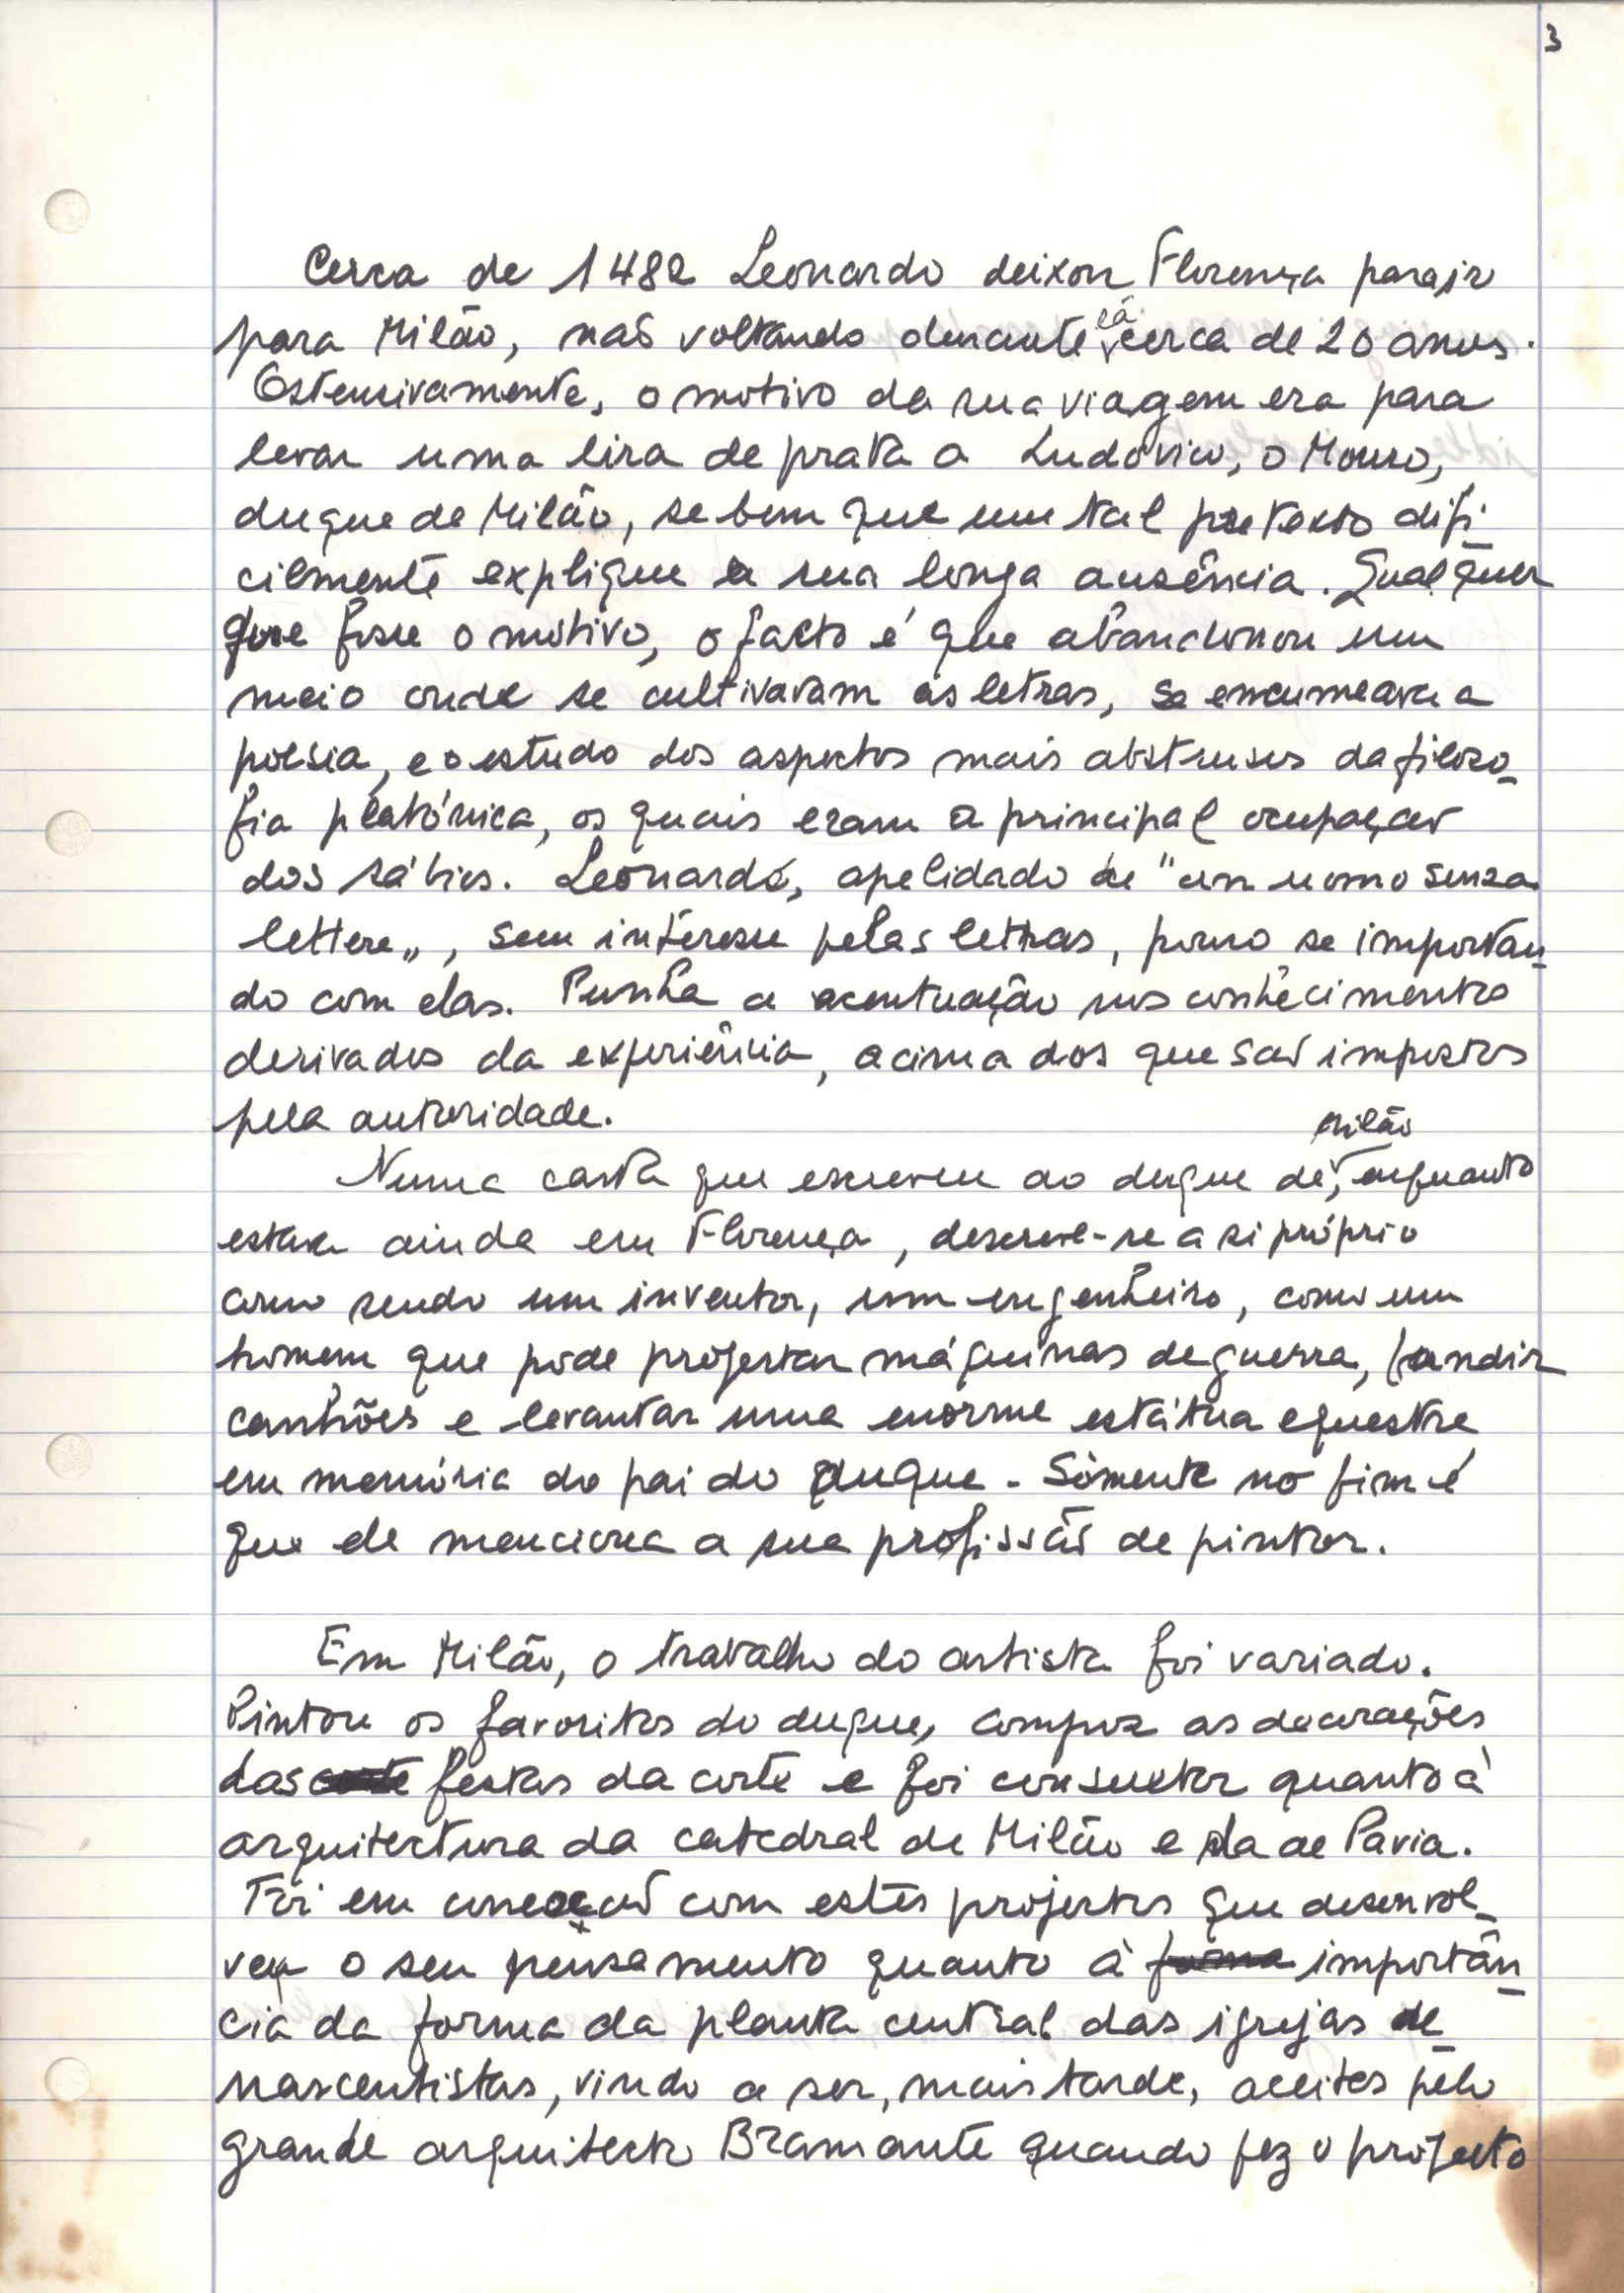 3
Cerca de 1482 Leonardo deixou Florença para ir
para Milão, não voltando durante lá cerca de 20 anos.
Ostensivamente, o motivo da sua viagem era para
levar uma lira de prata a Ludovico, o Mouro,
duque de Milão, se bem que um tal pretexto difi-
cilmente explique a sua longa ausência. Qualquer
que fosse o motivo, o facto é que abandonou um
meio onde se cultivavam as letras, se encumeava a
poesia, e o estudo dos aspectos mais abstrusos da filoso-
fia platónica, os quais eram a principal ocupação
dos sábios. Leonardo, apelidado de "un uomo senza
lettere", sem interesse pelas letras, pouco se importan-
do com elas. Punha a acentuação nos conhecimentos
derivados da experiência, acima dos que são impostos
pela autoridade.
Numa carta que escreveu ao duque de Milão, enquanto
estava ainda em Florença, descreve-se a si próprio
como sendo um inventor, um engenheiro, como um
homem que pode projectar máquinas de guerra, fundir
canhões e levantar uma enorme estátua equestre
em memória do pai do duque. Sòmente no fim é
que ele menciona a sua profissão de pintor.
Em Milão, o trabalho do artista foi variado.
Pintou os favoritos do duque, compoz as decorações
das festas da corte e foi consultor quanto à
arquitectura da catedral de Milão e da de Pavia.
Foi em conexão com estes projectos que desenvol-
veu o seu pensamento quanto à importân-
cia da forma da planta central das igrejas re-
nascentistas, vindo a ser, mais tarde, aceites pelo
grande arquitecto Bramante quando fez o projecto